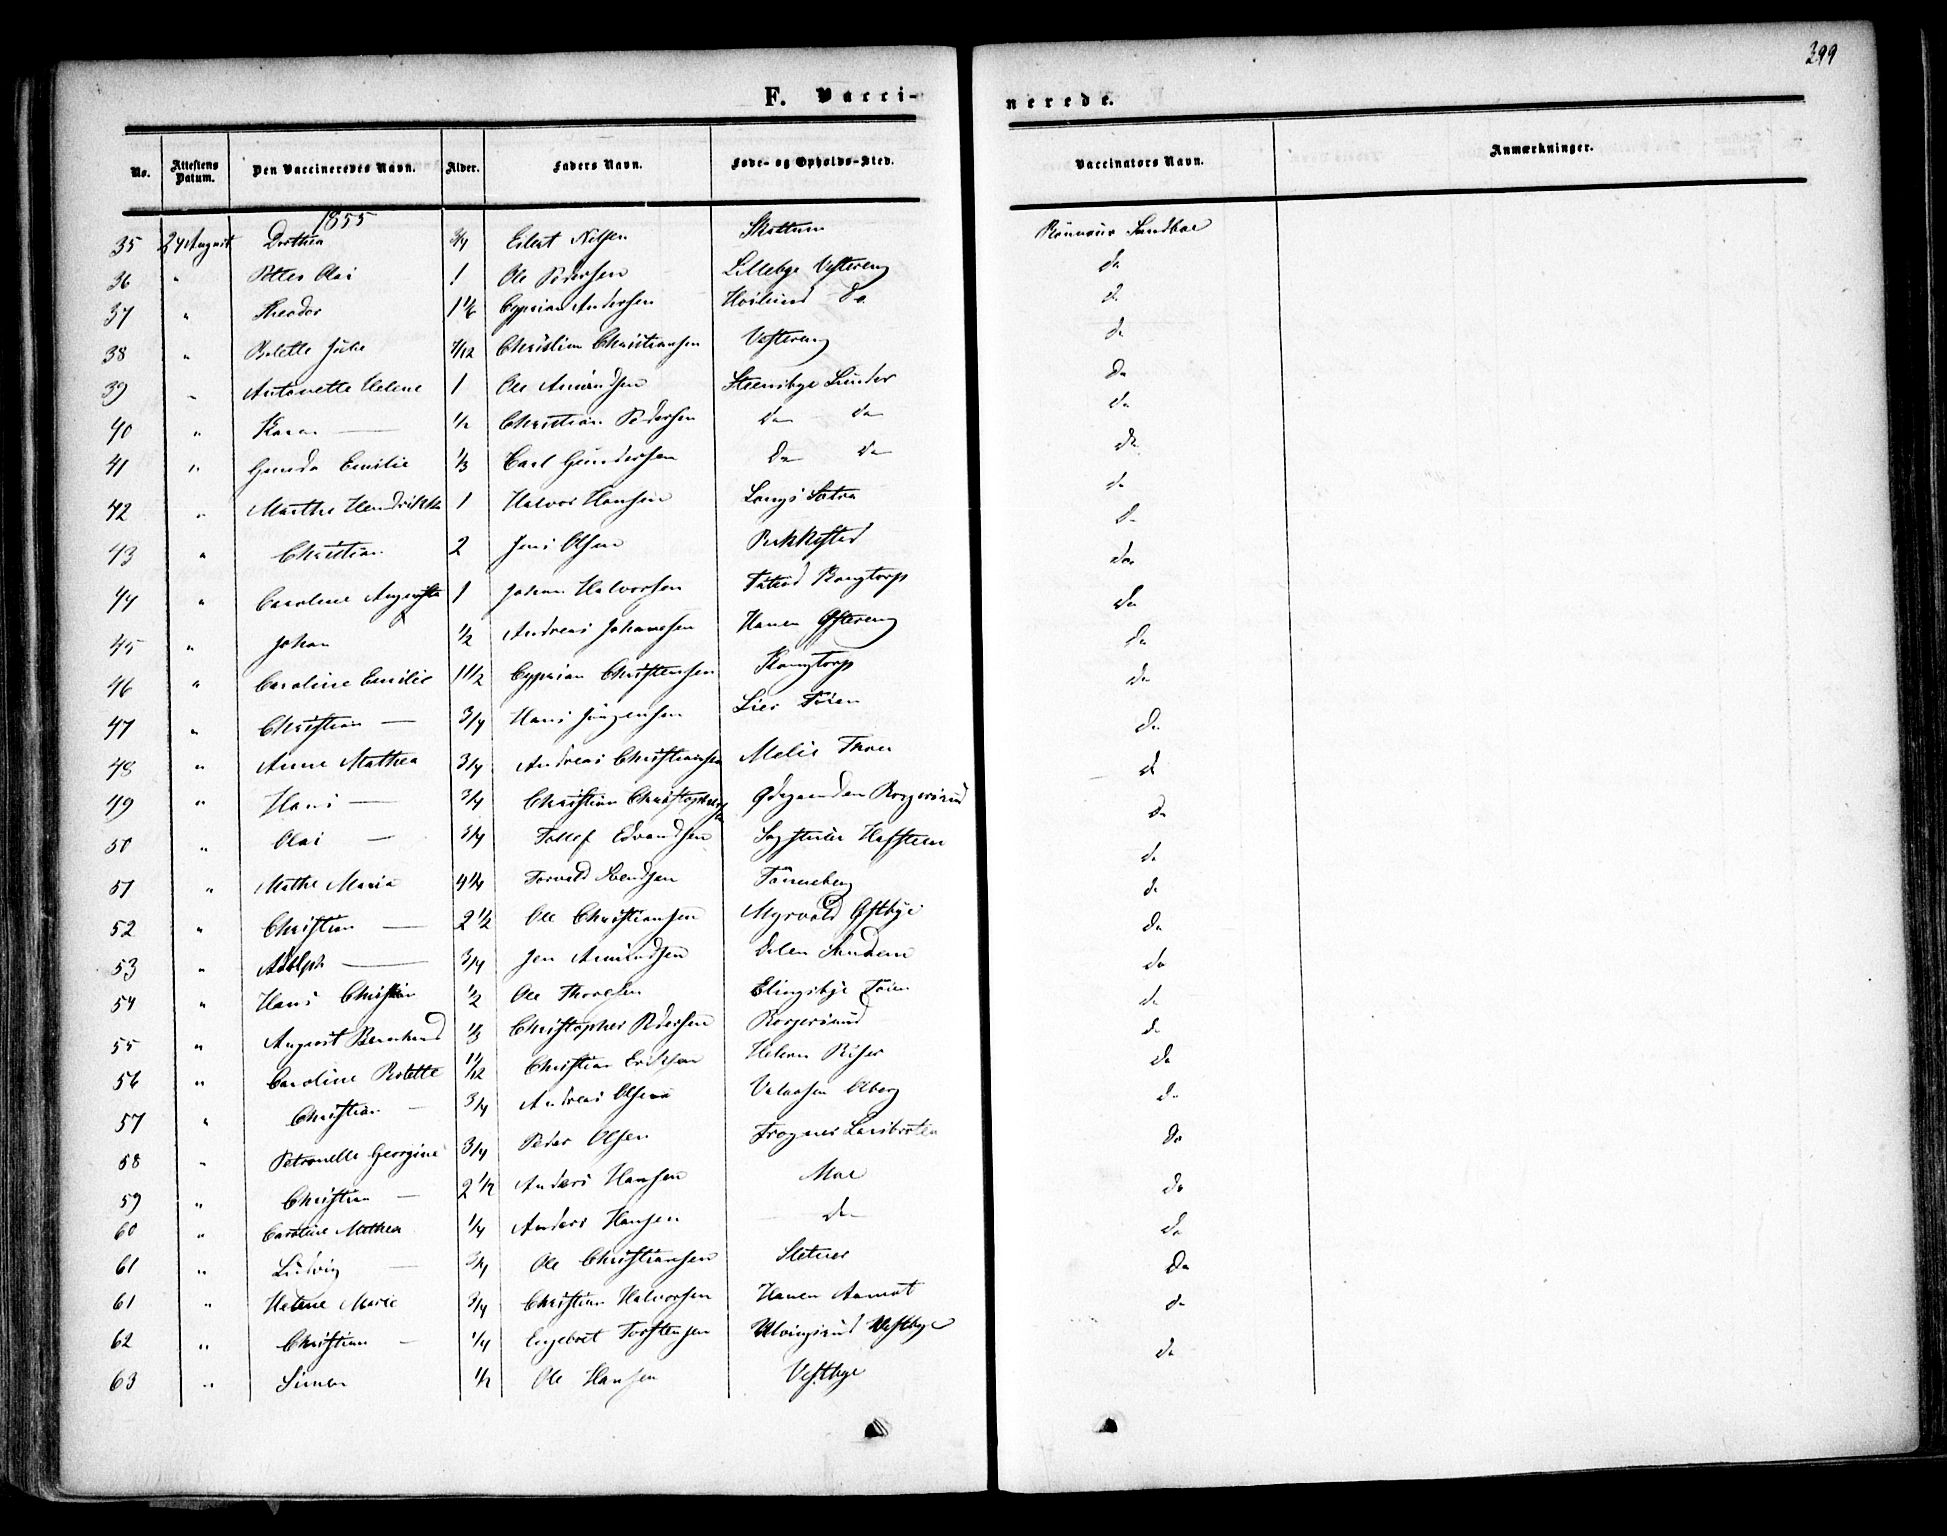 399
F. Vacci-nerede.
No. Attestens Datum. Den Vaccineredes Navn. Alder. Faders Navn. Føde- og Opholds-Sted. Vaccinators Navn. Anmærkninger.
1855
35 24 August Dorthea 3/4 Eilert Nilsen Skottum Sandboe
36 " Olai 1 Ole Pedersen Lillebye Vestereng do
37 " Theodor 1 1/6 Cyprian Andersen Do do
38 " Bolette Julie 7/12 Christian Christiansen Vestereng do
39 " Antonette Helene 1 Ole Amundsen Steensbye Lunder do
40 " Karen — 1/2 Christian Pedersen do do do
41 " Gunda Emilie 1/3 Carl Gundersen do do do
42 " Marthe Hendrikke 1 Halvor Hansen Langs Sætra do
43 " Christian 2 Jens Olsen Bekkestad do
44 " Caroline Augusta 1 Johan Halvorsen Kangtorp do
45 " Johan 1/2 Andreas Johannesen Hauen Østereng do
46 " Caroline Emilie 1 1/2 Cyprian Christensen Kangtorp do
47 " Christian — 3/4 Hans Jørgensen Lier Föien do
48 " Anne Mathea 3/4 Andreas Christiansen Melie do
49 " Hans — 3/4 Christian Christophersen Ødegaarden Borgersrud do
50 " Olai — 3/4 Tollef Edvardsen Hafsteen do
51 " Mathe Maria 4 1/4 Torvald Svendsen Tönneberg do
52 " Christian — 2 1/2 Ole Christiansen Myrvold Østbye do
53 " Adolph — 3/4 Jen Amundsen do
54 " Hans Christian 1/2 Ole Thoresen Elingsbye Föien do
55 " August Bernhard 1/3 Christopher Pedersen Borgersrud do
56 " Caroline Bolette 11/12 Christian Eriksen Riser do
57 " Christian — 3/4 Andreas Olsen Aaberg do
58 " Petronelle Georgine 3/4 Peder Olsen Frogner do
59 " Christian — 2 1/2 Anders Hansen Moe do
60 " Caroline Mathea 1/4 Anders Hansen do do
61 " Ludvig — 3/4 Ole Christiansen Sletner do
61 " Helene Marie 3/4 Christian Halvorsen Hauen Aamot do
62 " Christian — 1/4 Engebret Torstensen Ulvingsrud Vestbye do
63 " Simen 1/2 Ole Hansen Vestbye do